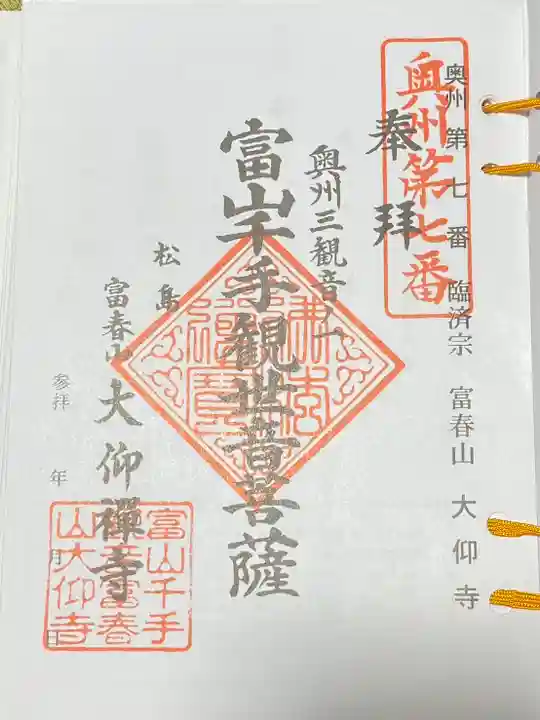 奥州第七番 臨済宗 富春山 大仰寺
奥州第七番
奉拝
奥州三観音ノ一
富山千手観世音菩薩
松島
富春山 大仰禅寺
参拝 年 月 日
富山千手
観音富春
山大仰寺